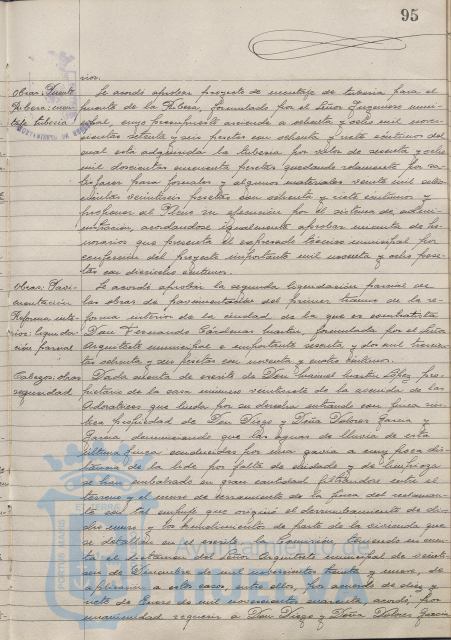 95
rios.
Obras: Puente
Ribera: mon-
taje tuberia
Se acordó aprobar proyecto de montaje de tuberia para el
puente de la Ribera, formulado por el Señor Ingeniero muni-
cipal, cuyo presupuesto asciende a ochenta y ocho mil nove-
cientas setenta y seis pesetas con ochenta y siete céntimos del
cual esta adquirida la tuberia por valor de sesenta y ocho
mil doscientas cincuenta pesetas quedando solamente por sa-
tisfacer para jornales y algunos materiales veinte mil sete-
cientas veintiseis pesetas con ochenta y siete centimos y
proponer al Pleno su ejecución por el sistema de admi-
nistración, acordandose igualmente aprobar minuta de ho-
norarios que presenta el expresado técnico municipal por
confección del proyecto importante mil noventa y ocho pese-
tas con dieciseis centimos.
Obras: Pavi-
mentación
Reforma inte-
rior: liquida-
ción parcial
Se acordó aprobar la segunda liquidación parcial de
las obras de pavimentación del primer tramo de la re-
forma interior de la ciudad de la que es contratista
Don Fernando Cárdenas Martin, formulada por el Señor
Arquitecto municipal e importante sesenta y dos mil trescien-
tas ochenta y seis pesetas con noventa y cuatro centimos.
Cabezos: obras
seguridad
Dada cuenta de escrito de Don Manuel Martin López pro-
pietario de la casa número veintisiete de la avenida de las
Adoratrices que linda por su derecha entrando con finca rús-
tica propiedad de Don Diego y Doña Dolores Garcia y
Garcia, denunciando que las aguas de lluvia de esta
última finca conducidas por una gavia a muy poca dis-
tancia de la linde por falta de cuidado y de limpieza
se han embalsado en gran cantidad filtrandose entre el
terreno y el muro de cerramiento de la finca del reclaman-
te con tal empuje que originó el derrumbamiento de di-
cho muro y los hundimientos de parte de la vivienda que
se detallan en el escrito la Comisión, teniendo en cuen-
ta el dictamen del Señor Arquitecto municipal de veinti-
seis de Diciembre de mil novecientos treinta y nueve, de
aplicación a estos casos, entre ellos, por acuerdo de diez y
siete de Enero de mil novecientos cuarenta, acordó, por
unanimidad requerir a Don Diego y Doña Dolores Garcia
Ayuntamiento
HUELVA